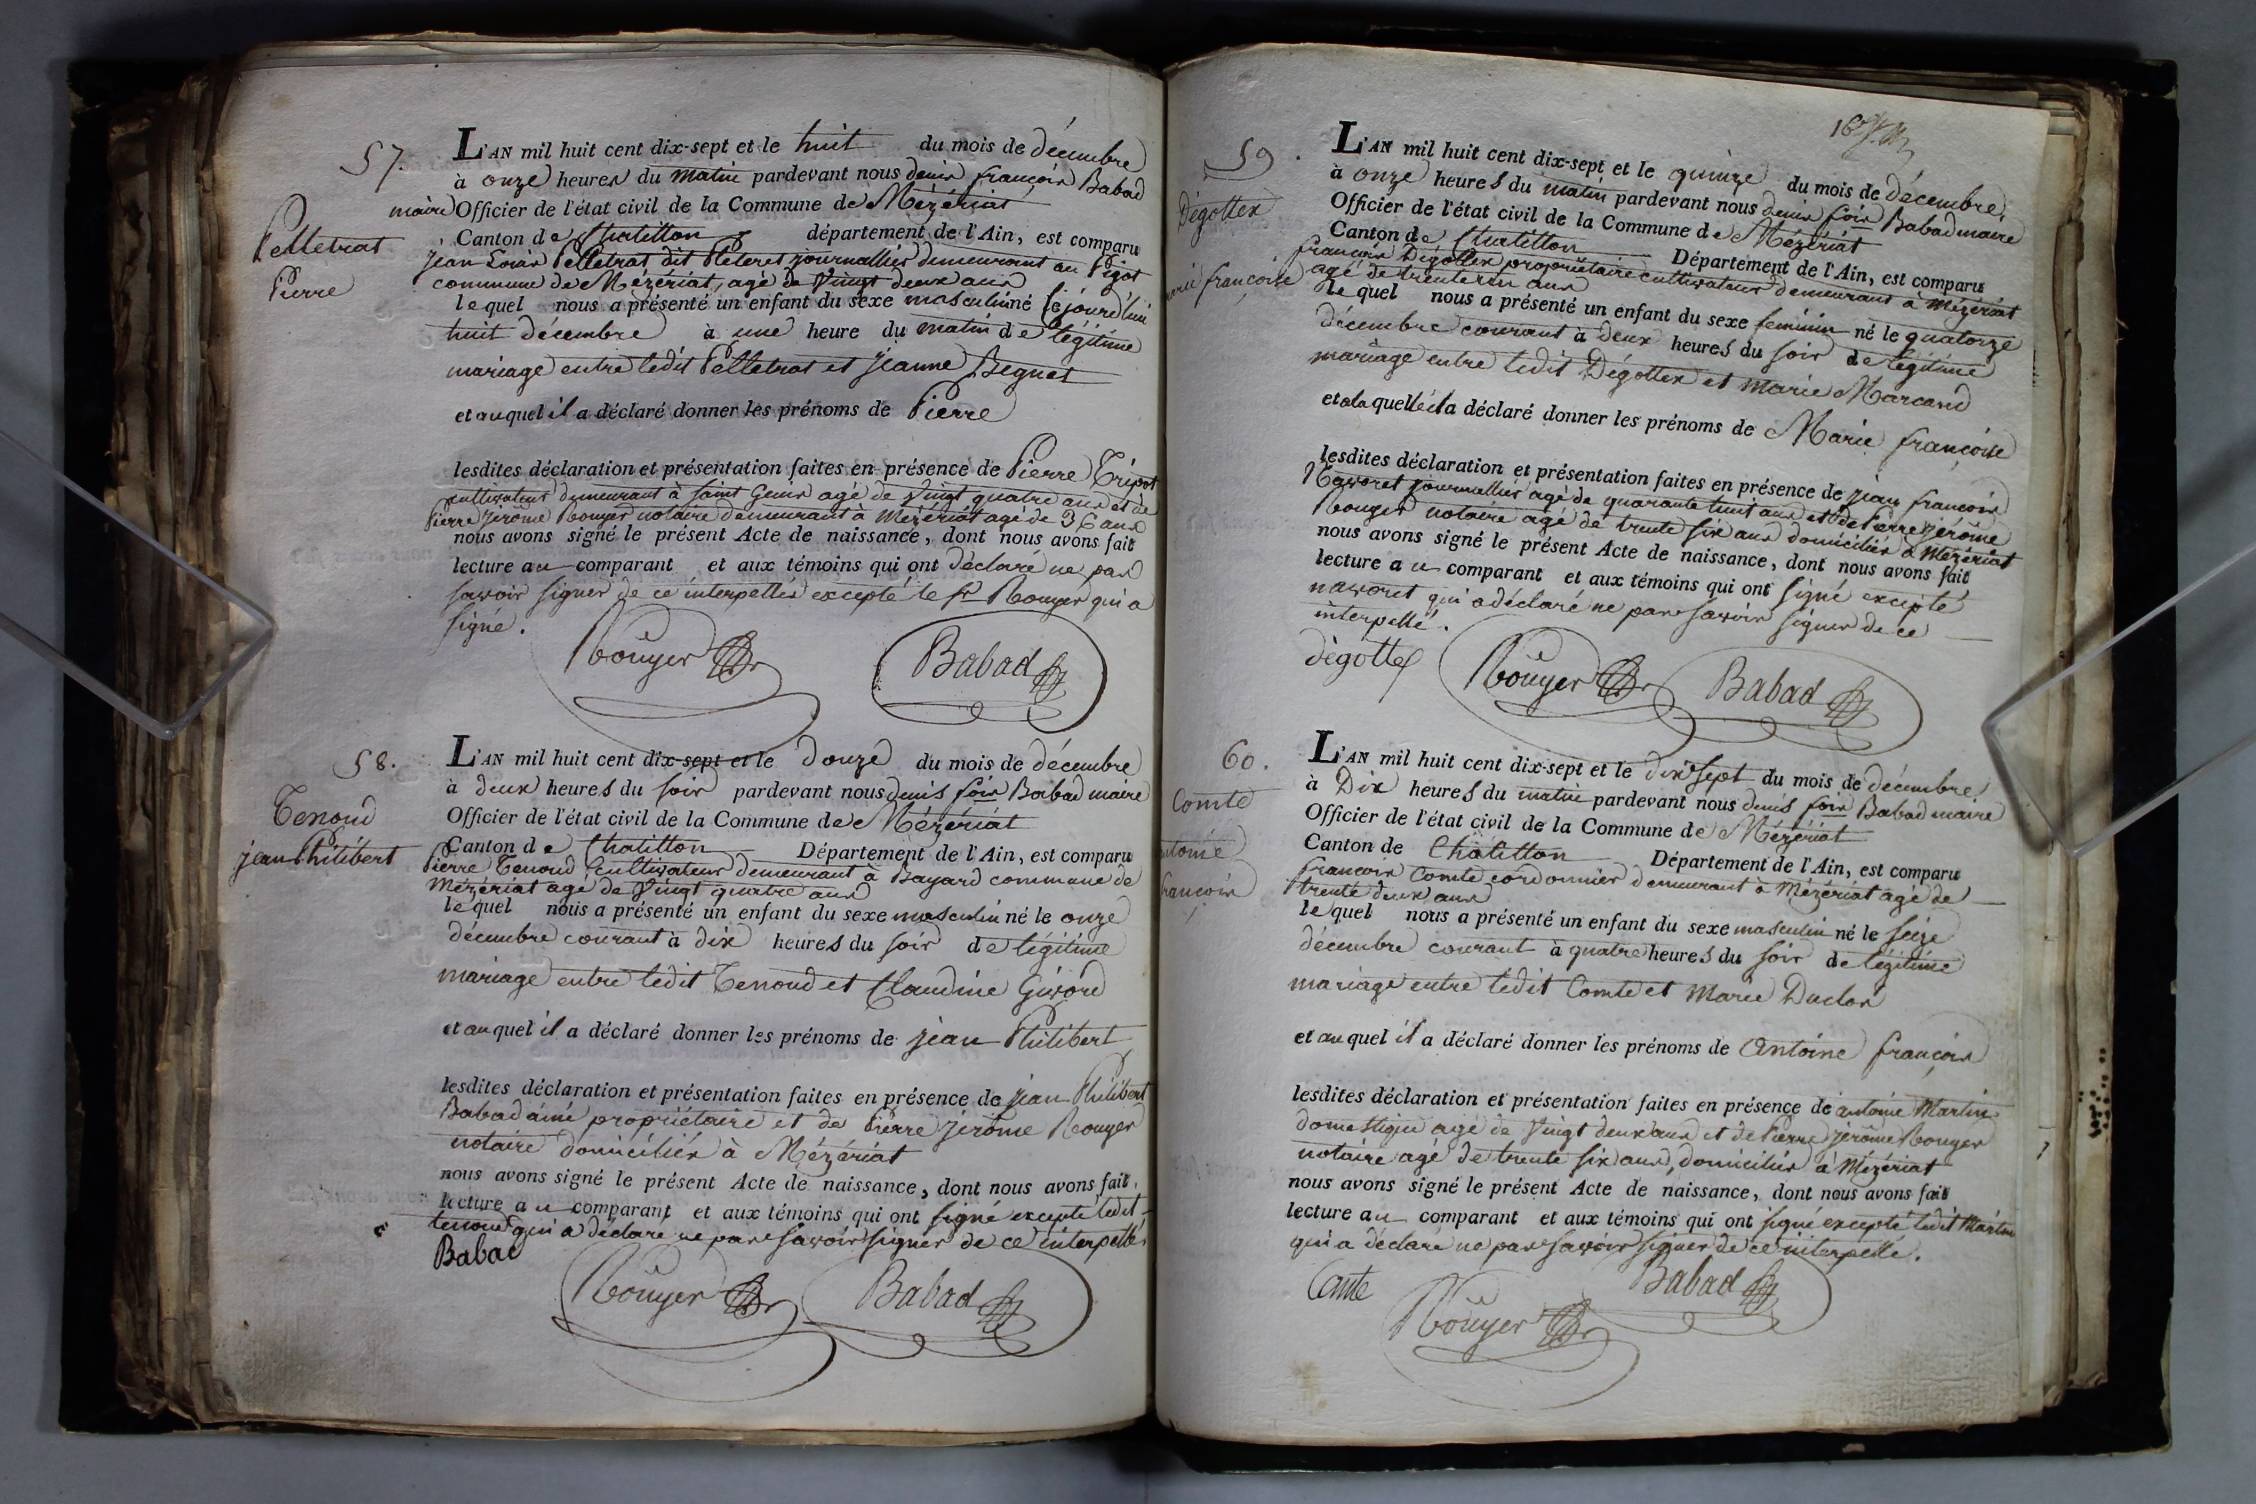 57.
Pelletrat
Pierre
L'AN mil huit cent dix-sept et le huit du mois de décembre
à onze heures du matin pardevant nous denis françois Babad
maire Officier de l'état civil de la Commune de Mézériat
Canton de Chatillon département de l'Ain, est comparu
jean Louis Pelletrat dit Peteret journallier demeurant au Pigot
commune de Mézériat, agé de vingt deux ans
lequel nous a présenté un enfant du sexe masculin né cejourd'hui
huit décembre à une heure du matin de légitime
mariage entre ledit Pelletrat et jeanne Beguet
et auquel il a déclaré donner les prénoms de Pierre
lesdites déclaration et présentation faites en présence de Pierre Tripot
cultivateur demeurant à saint Genis agé de vingt quatre ans et de
Pierre jérôme Rouyer notaire demeurant à Mézériat agé de 36 ans
nous avons signé le présent Acte de naissance, dont nous avons fait
lecture au comparant et aux témoins qui ont déclaré ne pas
savoir signer de ce interpellés excepté le sr Rouyer qui a
signé.
Rouyer Babad
58.
Tenoud
jean Philibert
L'AN mil huit cent dix-sept et le douze du mois de décembre
à deux heures du soir pardevant nous denis fois Babad maire
Officier de l'état civil de la Commune de Mézériat
Canton de Chatillon Département de l'Ain, est comparu
Pierre Tenoud cultivateur demeurant à Bayard commune de
Mézériat agé de vingt quatre ans
lequel nous a présenté un enfant du sexe masculin né le onze
décembre courant à dix heures du soir de légitime
mariage entre ledit Tenoud et Claudine Givord
et auquel il a déclaré donner les prénoms de jean Philibert
lesdites déclaration et présentation faites en présence de jean Philibert
Babad ainé propriétaire et de Pierre jérôme Rouyer
notaire domiciliés à Mézériat
nous avons signé le présent Acte de naissance, dont nous avons fait
lecture au comparant et aux témoins qui ont signé excepté ledit
tenoud qui a déclaré ne pas savoir signer de ce interpellé
Babad
Rouyer Babad
59.
Dégottex
marie françoise
L'AN mil huit cent dix-sept et le quinze du mois de décembre
à onze heures du matin pardevant nous denis fois Babad maire
Officier de l'état civil de la Commune de Mézériat
Canton de Chatillon Département de l'Ain, est comparu
françois Dégottex propriétaire cultivateur demeurant à Mézériat
agé de trente un ans
lequel nous a présenté un enfant du sexe feminin né le quatorze
décembre courant à deux heures du soir de légitime
mariage entre ledit Dégottex et Marie Marcand
et alaquelle il a déclaré donner les prénoms de Marie françoise
lesdites déclaration et présentation faites en présence de jean françois
Navoret journallier agé de quarante huit ans et de Pierre jérôme
Rouyer notaire agé de trente six ans domiciliés à Mézériat
nous avons signé le présent Acte de naissance, dont nous avons fait
lecture au comparant et aux témoins qui ont signé excepté
navoret qui a déclaré ne pas savoir signer de ce
interpellé.
dégottex Rouyer Babad
60.
Comte
antoine
françois
L'AN mil huit cent dix-sept et le dix sept du mois de décembre
à Dix heures du matin pardevant nous denis fois Babad maire
Officier de l'état civil de la Commune de Mézériat
Canton de Châtillon Département de l'Ain, est comparu
françois Comte cordonnier demeurant à Mézériat agé de
trente deux ans
lequel nous a présenté un enfant du sexe masculin né le seize
décembre courant à quatre heures du soir de légitime
mariage entre ledit Comte et Marie Duclos
et auquel il a déclaré donner les prénoms de Antoine françois
lesdites déclaration et présentation faites en présence de antoine Martin
domestique agé de vingt deux ans et de Pierre jérôme Rouyer
notaire agé de trente six ans, domiciliés à Mézériat
nous avons signé le présent Acte de naissance, dont nous avons fait
lecture au comparant et aux témoins qui ont signé excepté ledit Martin
qui a déclaré ne pas savoir signer de ce interpellé.
Comte Rouyer Babad